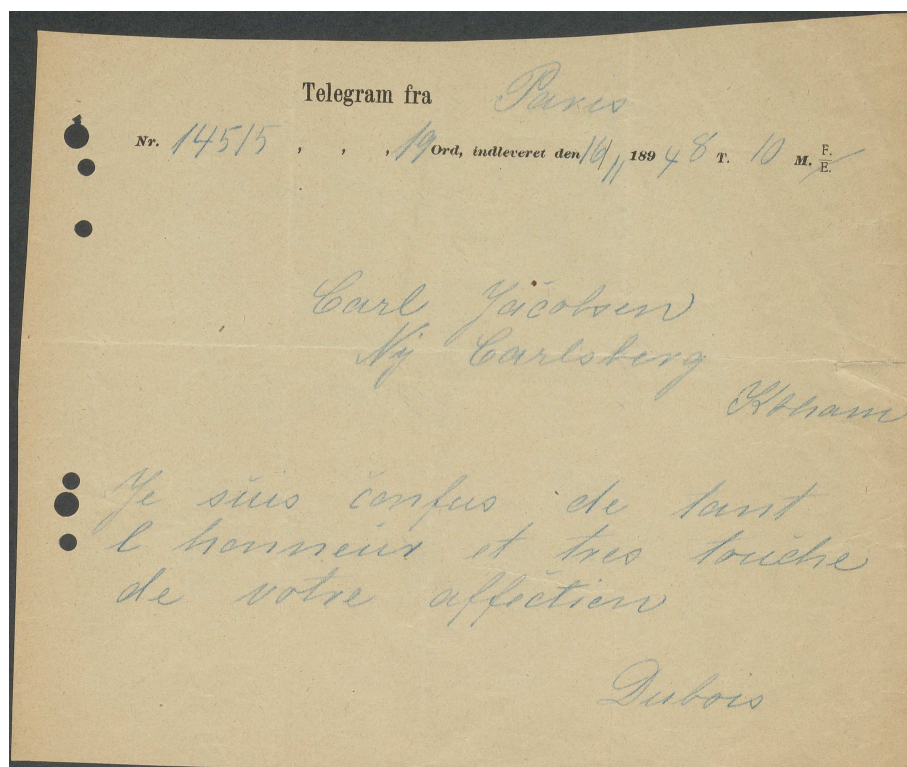 Telegram fra Paris
Nr. 14515 , , , 19 Ord, indleveret den 16/11 1894 8 T. 10 M. F./E.
Carl Jacobsen
Ny Carlsberg
Kbham
Je suis confus de tant
l honneur et tres touche
de votre affection
Dubois